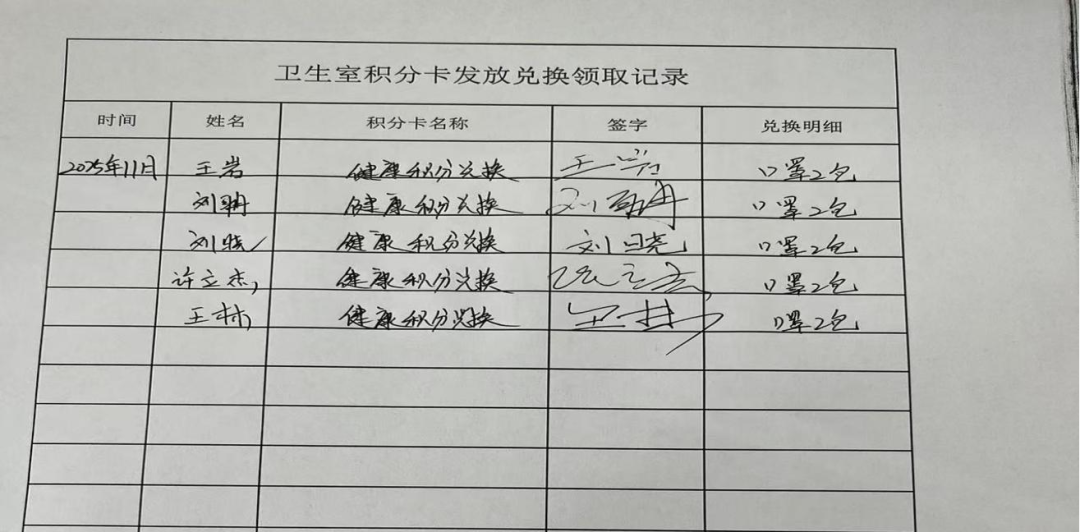 卫生室积分卡发放兑换领取记录
时间 姓名 积分卡名称 签字 兑换明细
2025年11月 王岩 健康积分兑换 王岩 口罩2包
刘明 健康积分兑换 刘 口罩2包
刘晓 健康积分兑换 刘晓 口罩2包
许立杰 健康积分兑换 许立杰 口罩2包
王林 健康积分兑换 王林 口罩2包